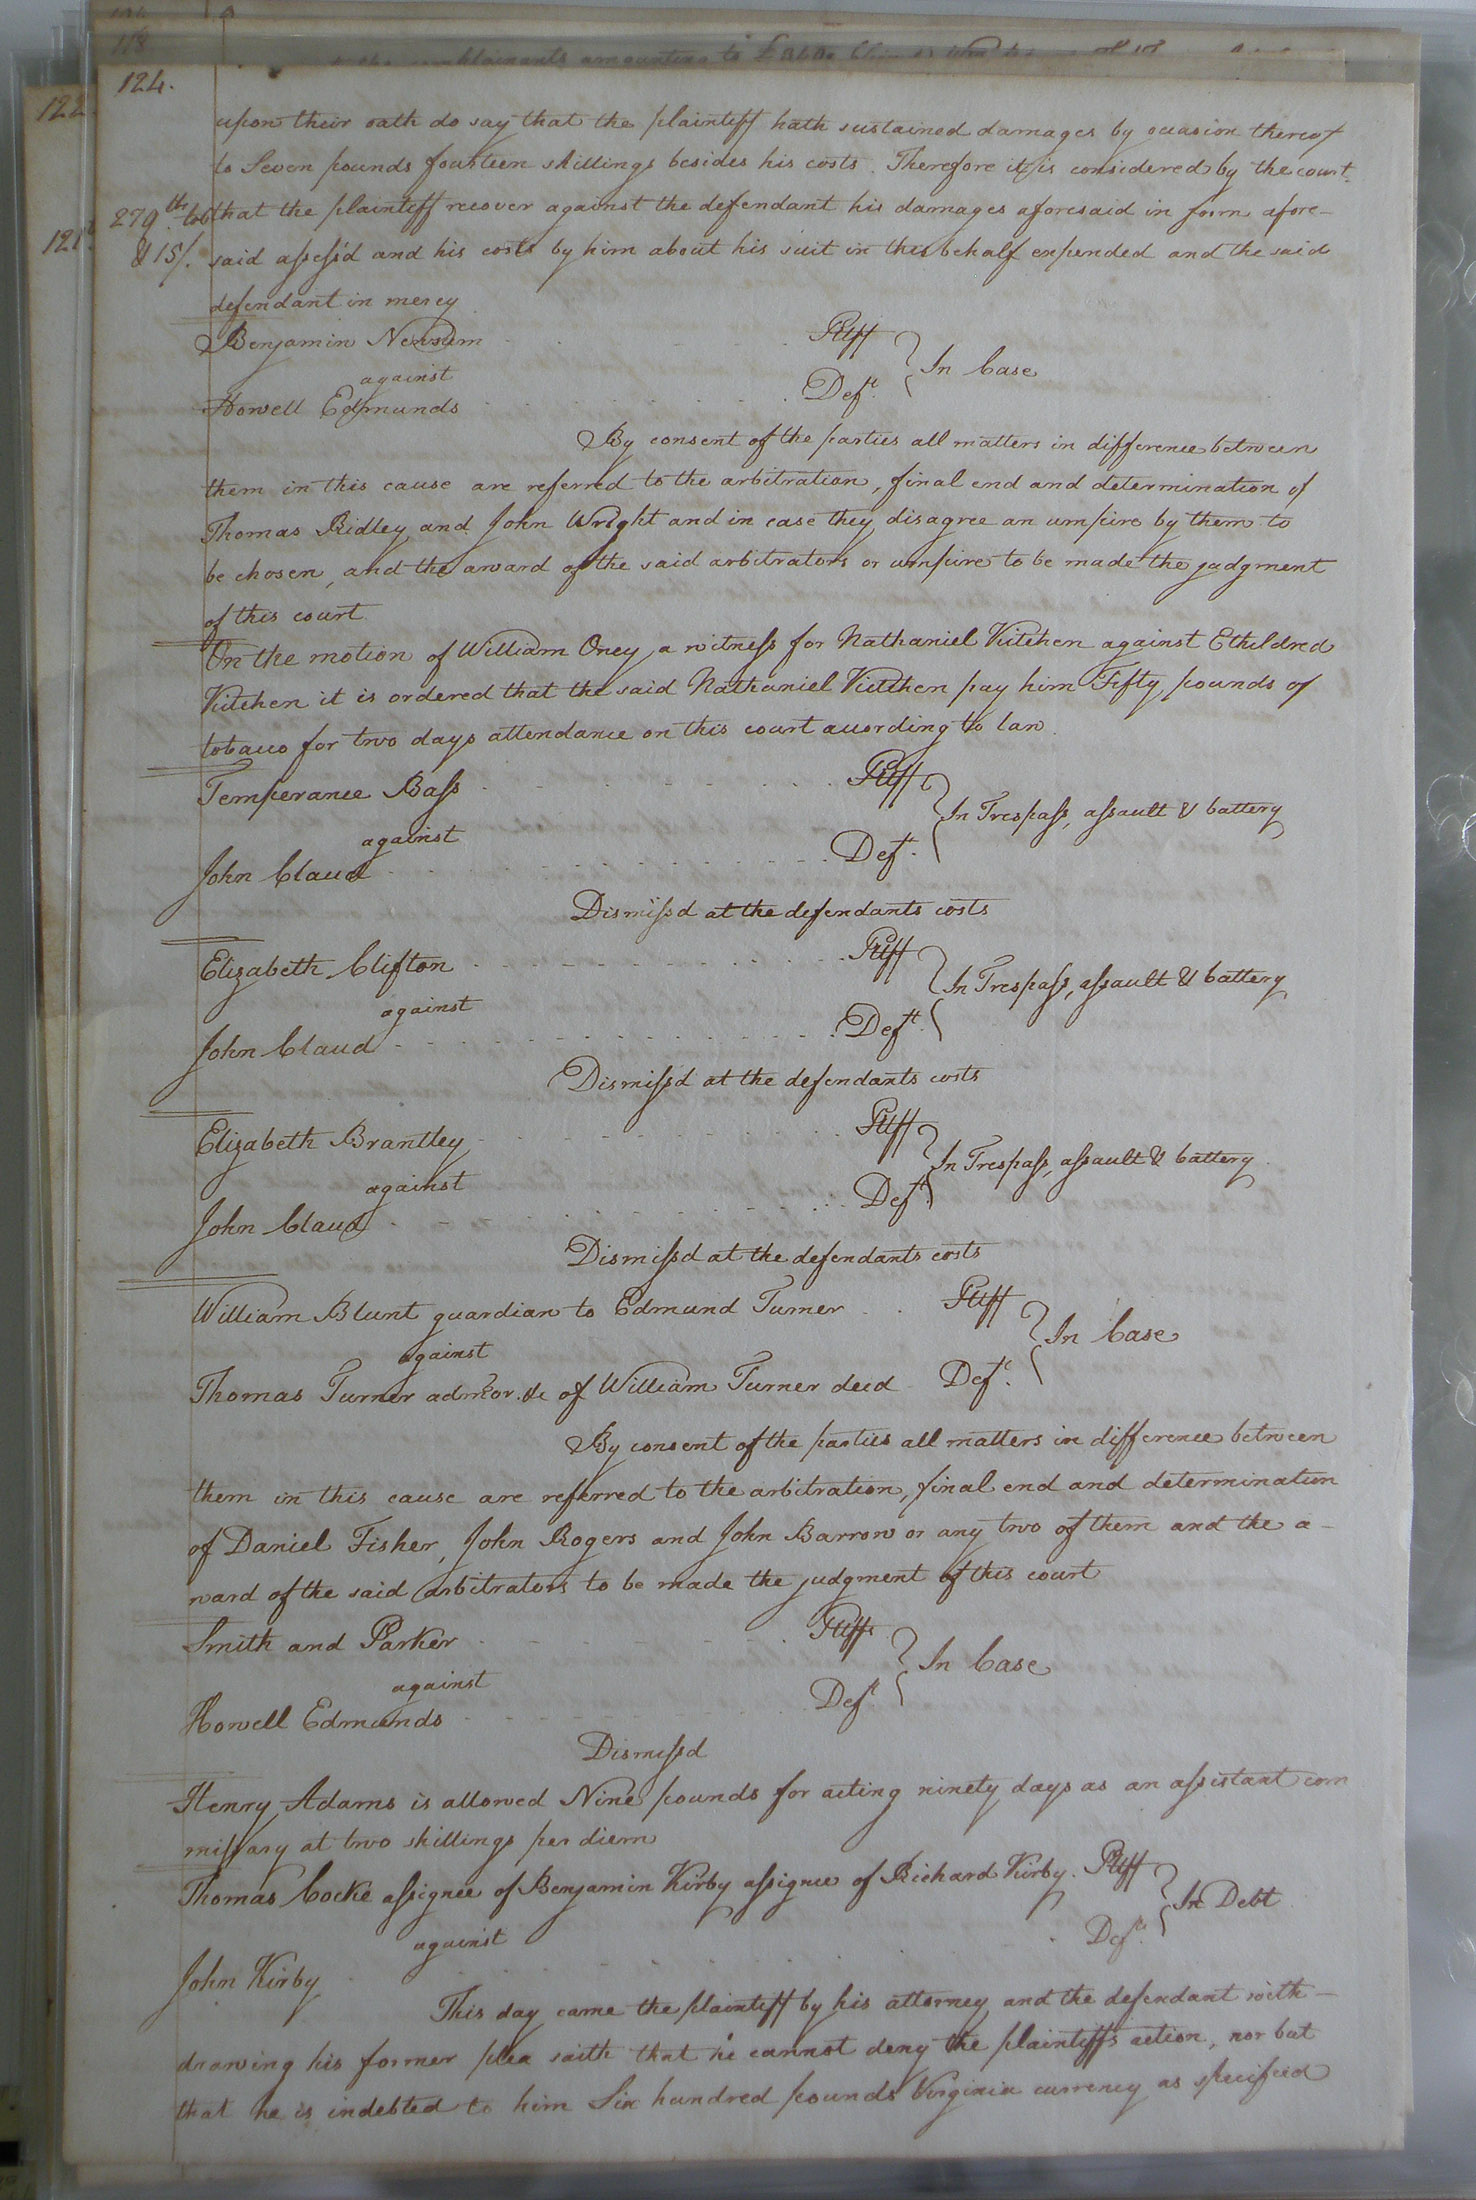 124.
upon their oath do say that the plaintiff hath sustained damages by occasion thereof
to Seven pounds fourteen shillings besides his costs. Therefore it is considered by the court
279 lb. tob
that the plaintiff recover against the defendant his damages aforesaid in form afore-
& 15/.
said assess'd and his costs by him about his suit in this behalf expended and the said
defendant in mercy
Benjamin Newsum Pltff
against } In Case
Howell Edmunds Deft.
By consent of the parties all matters in difference between
them in this cause are referred to the arbitration, final end and determination of
Thomas Ridley and John Wright and in case they disagree an umpire by them to
be chosen, and the award of the said arbitrators or umpire to be made the judgment
of this court
On the motion of William Oney a witness for Nathaniel Kitchen against Etheldred
Kitchen it is ordered that the said Nathaniel Kitchen pay him Fifty pounds of
tobacco for two days attendance on this court according to law.
Temperance Bass Pltff
against } In Trespass, assault & battery
John Claud Deft.
Dismiss'd at the defendants costs
Elizabeth Clifton Pltff
against } In Trespass, assault & battery
John Claud Deft.
Dismiss'd at the defendants costs
Elizabeth Brantley Pltff
against } In Trespass, assault & battery
John Claud Deft.
Dismiss'd at the defendants costs
William Blunt guardian to Edmund Turner Pltff
against } In Case
Thomas Turner admor. &c of William Turner decd Deft.
By consent of the parties all matters in difference between
them in this cause are referred to the arbitration, final end and determination
of Daniel Fisher, John Rogers and John Barrow or any two of them and the a-
ward of the said arbitrators to be made the judgment of this court
Smith and Parker Pltffs
against } In Case
Howell Edmunds Deft.
Dismiss'd
Henry Adams is allowed Nine pounds for acting ninety days as an assistant com
missary at two shillings per diem
Thomas Cocke assignee of Benjamin Kirby assignee of Richard Kirby. Pltff
against } In Debt
John Kirby Deft.
This day came the plaintiff by his attorney and the defendant with-
drawing his former plea saith that he cannot deny the plaintiffs action, nor but
that he is indebted to him Six hundred pounds Virginia currency as specified
122
121
118